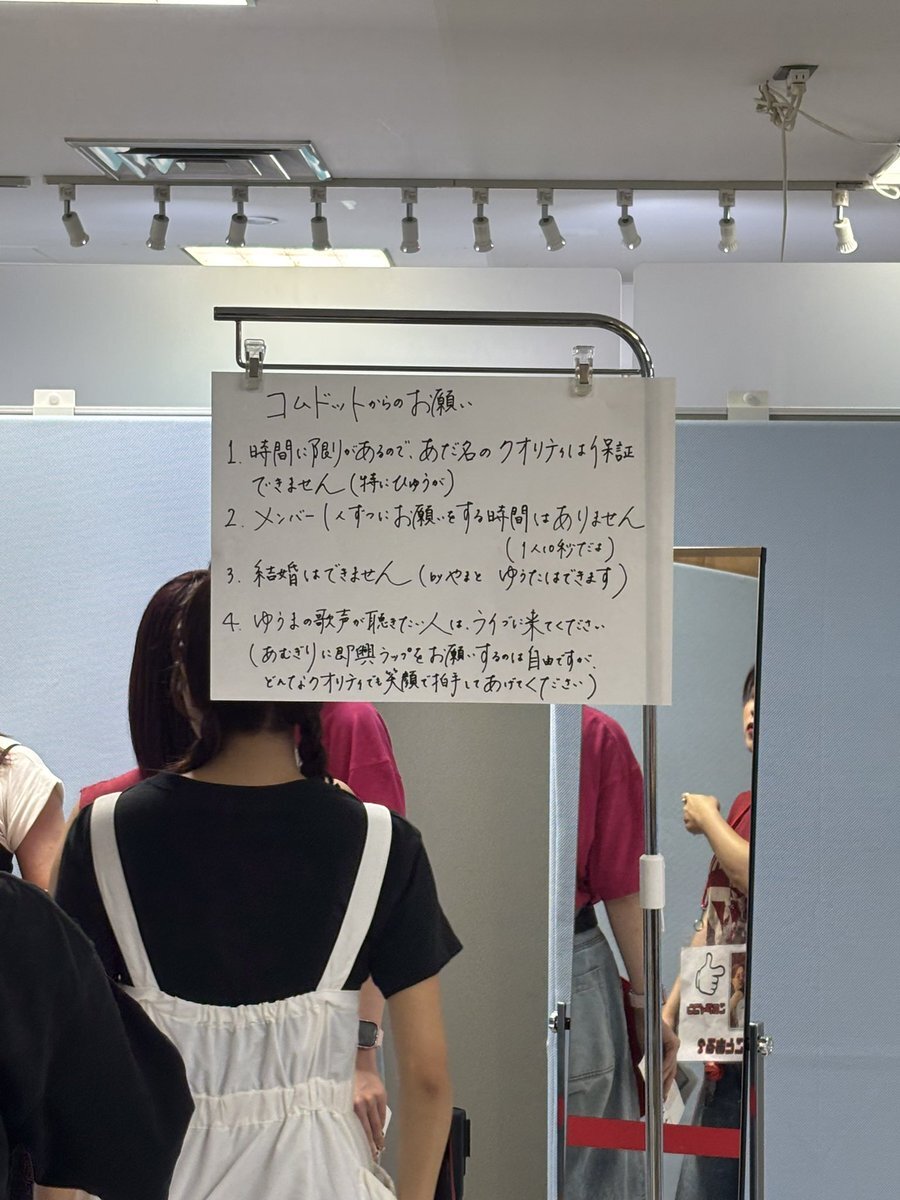 コムドットからのお願い
1. 時間に限りがあるので、あだ名のクオリティは保証
できません（特にひゅうが）
2. メンバー1人ずつにお願いをする時間はありません
（1人10秒だよ）
3. 結婚はできません（byやまと ゆうたはできます）
4. ゆうまの歌声が聴きたい人は、ライブに来てください
（あむぎりに即興ラップをお願いするのは自由ですが、
どんなクオリティでも笑顔で拍手してあげてください）